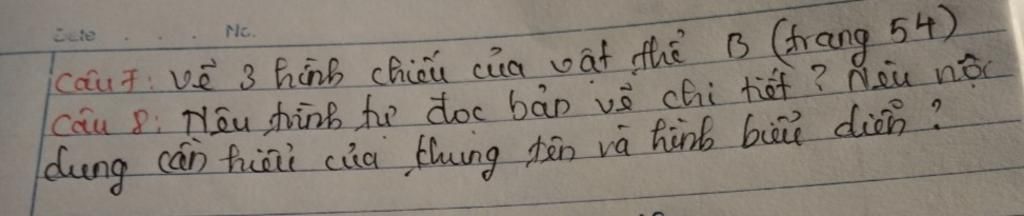 Date No.
Câu 7: Vẽ 3 hình chiếu của vật thể B (trang 54)
Câu 8: Nêu trình tự đọc bản vẽ chi tiết? Nêu nội
dung cần hiểu của khung tên và hình biểu diễn?